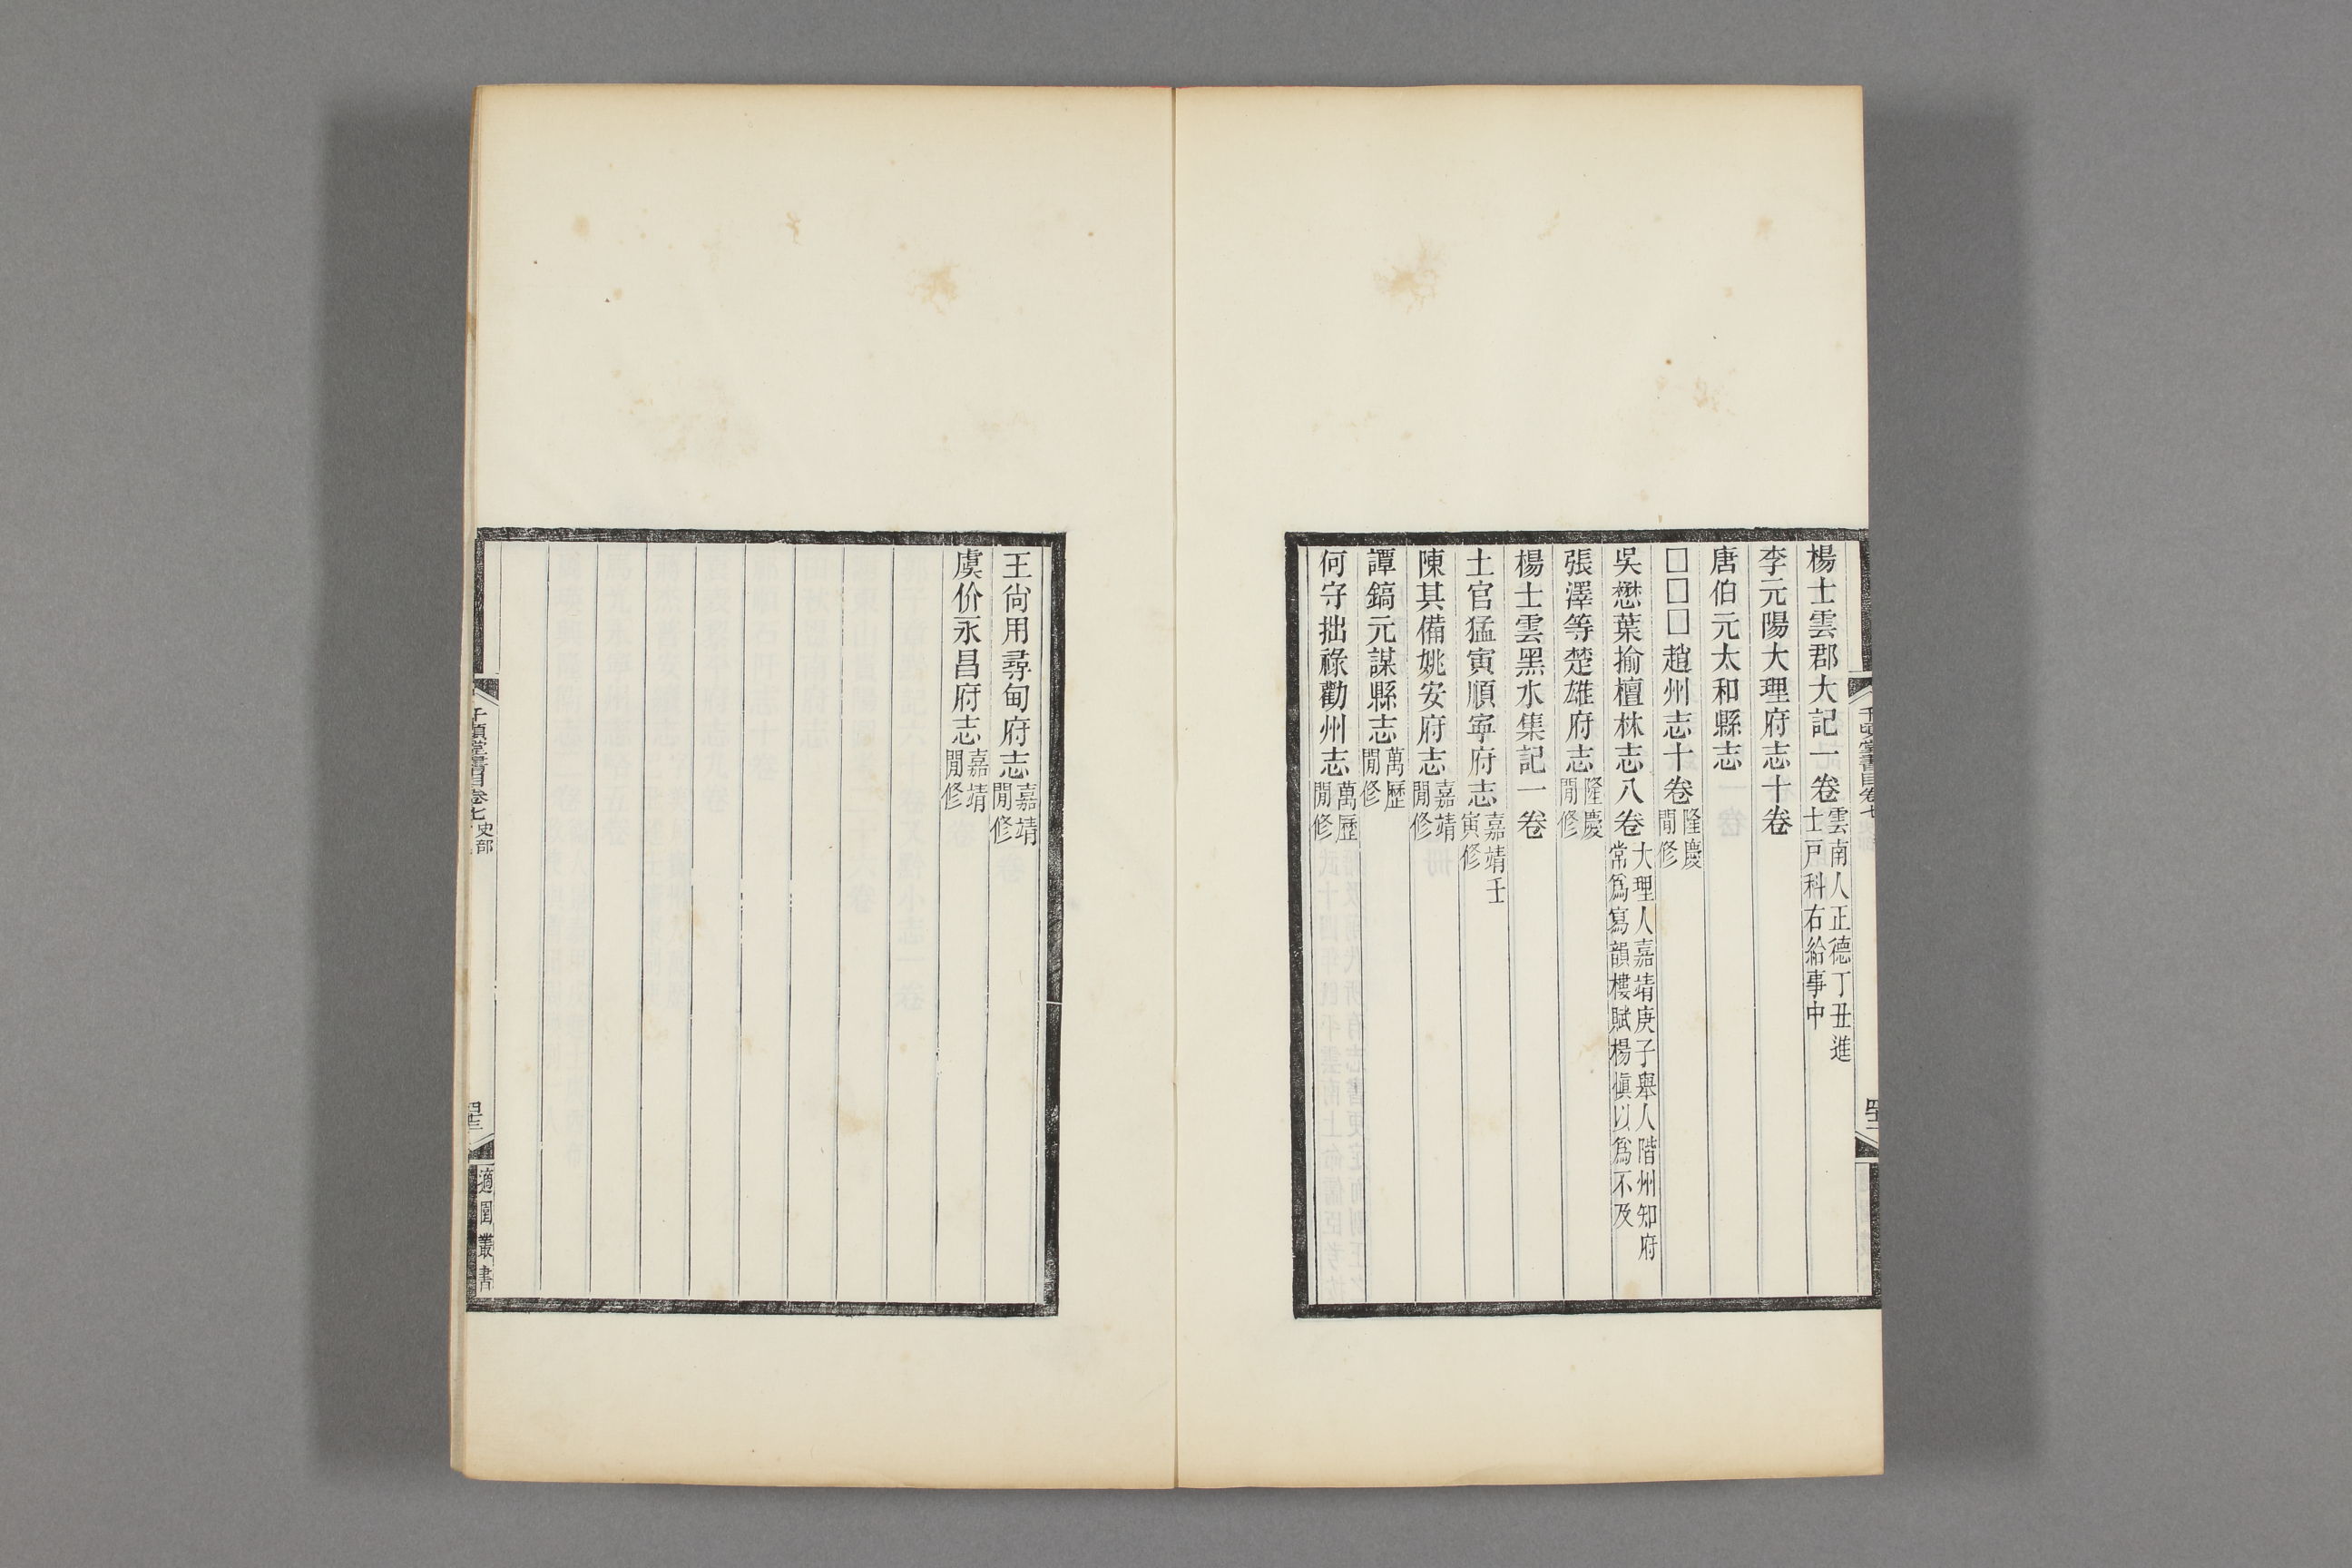 楊士雲郡大記一卷雲南人正德丁丑進士戸科右給事中
李元陽大理府志十卷
唐伯元太和縣志
□□□趙州志十卷隆慶閒修
吳懋葉揄檀林志八卷大理人嘉靖庚子舉人階州知府常爲寫韻樓賦楊愼以爲不及
張澤等楚雄府志隆慶閒修
楊士雲黑水集記一卷
土官猛寅順寧府志嘉靖壬寅修
陳其備姚安府志嘉靖閒修
譚鎬元謀縣志萬歷閒修
何守拙祿勸州志萬歷閒修
王尙用尋甸府志嘉靖閒修
虞价永昌府志嘉靖閒修
千頃堂書目卷七 史部
適園叢書